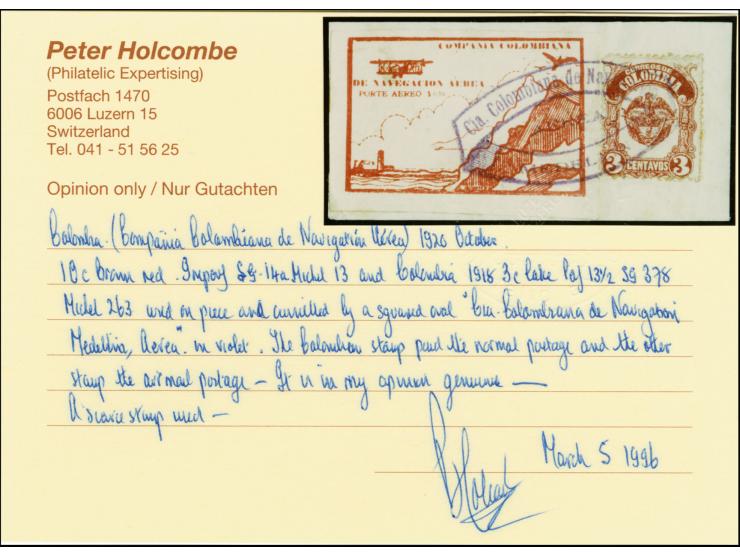 Peter Holcombe
(Philatelic Expertising)
Postfach 1470
6006 Luzern 15
Switzerland
Tel. 041 - 51 56 25
Opinion only / Nur Gutachten
COMPAÑIA COLOMBIANA
DE NAVEGACION AEREA
PORTE AEREO
Cia. Colombiana de Nav
CORREOS DE
COLOMBIA
3 CENTAVOS 3
Colombia. (Compañia Colombiana de Navigation Aérea) 1920 October.
10c Brown red. Imperf SG-14a Michel 13 and Colombia 1918 3c lake perf 13½ SG 378
Michel 263 used on piece and cancelled by a squared oval "Cia. Colombiana de Navigation
Medellin, Aerea" in violet. The Colombian stamp paid the normal postage and the other
stamp the airmail postage – It is in my opinion genuine —
A scarce stamp used —
March 5 1996